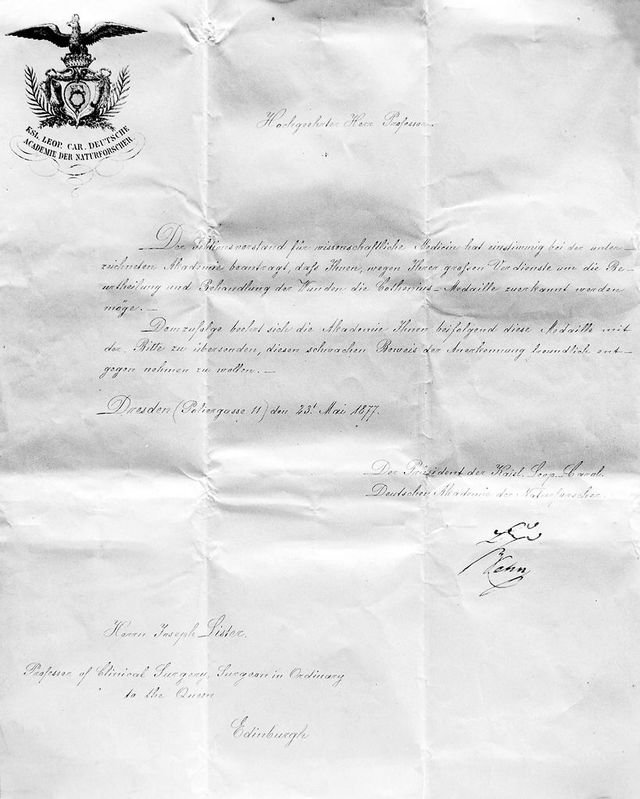 KSL. LEOP. CAR. DEUTSCHE
ACADEMIE DER NATURFORSCHER
Hochgeehrter Herr Professor
Der Sektionsvorstand für wissenschaftliche Medicin hat einstimmig bei der unter-
zeichneten Akademie beantragt, dafs Ihnen, wegen Ihrer grofsen Verdienste um die Be-
urtheilung und Behandlung der Wunden die Cothenius-Medaille zuerkannt werden
möge. —
Demzufolge beehrt sich die Akademie Ihnen beifolgend diese Medaille mit
der Bitte zu übersenden, diesen schwachen Beweis der Anerkennung freundlich ent-
gegen nehmen zu wollen. —
Dresden (Poliergasse 11) den 23t Mai 1877.
Der Präsident der Kaisl. Leop. Carol.
Deutschen Akademie der Naturforscher
Herrn Joseph Lister.
Professor of Clinical Surgery, Surgeon in Ordinary
to the Queen
Edinburgh